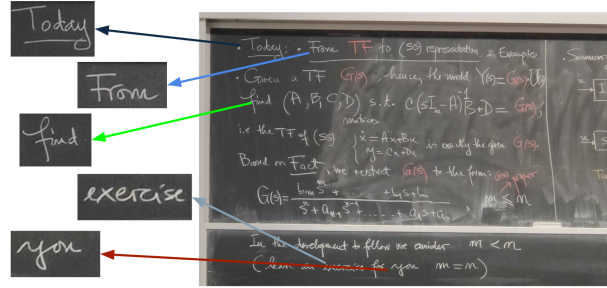 Today
From
find
exercise
you
• Today: • From TF to (SS) representation & Examples
• Given a TF G(s), hence, the model Y(s)=G(s)·U(s)
find (A, B, C, D) s.t. C(sI_n-A)^{-1}B+D = G(s),
matrices
i.e the TF of (SS) { ẋ = Ax+Bu is exactly the given G(s).
y = Cx+Du
Based on Fact, we restrict G(s) to the form: G(s) proper
G(s) = \frac{b_m s^m + ..... + b_1 s + b_0}{s^n + a_{n-1} s^{n-1} + ..... + a_1 s + a_0} , m ≤ n
In the development to follow we consider m < n
(learn an exercise for you m = n)
• Summar